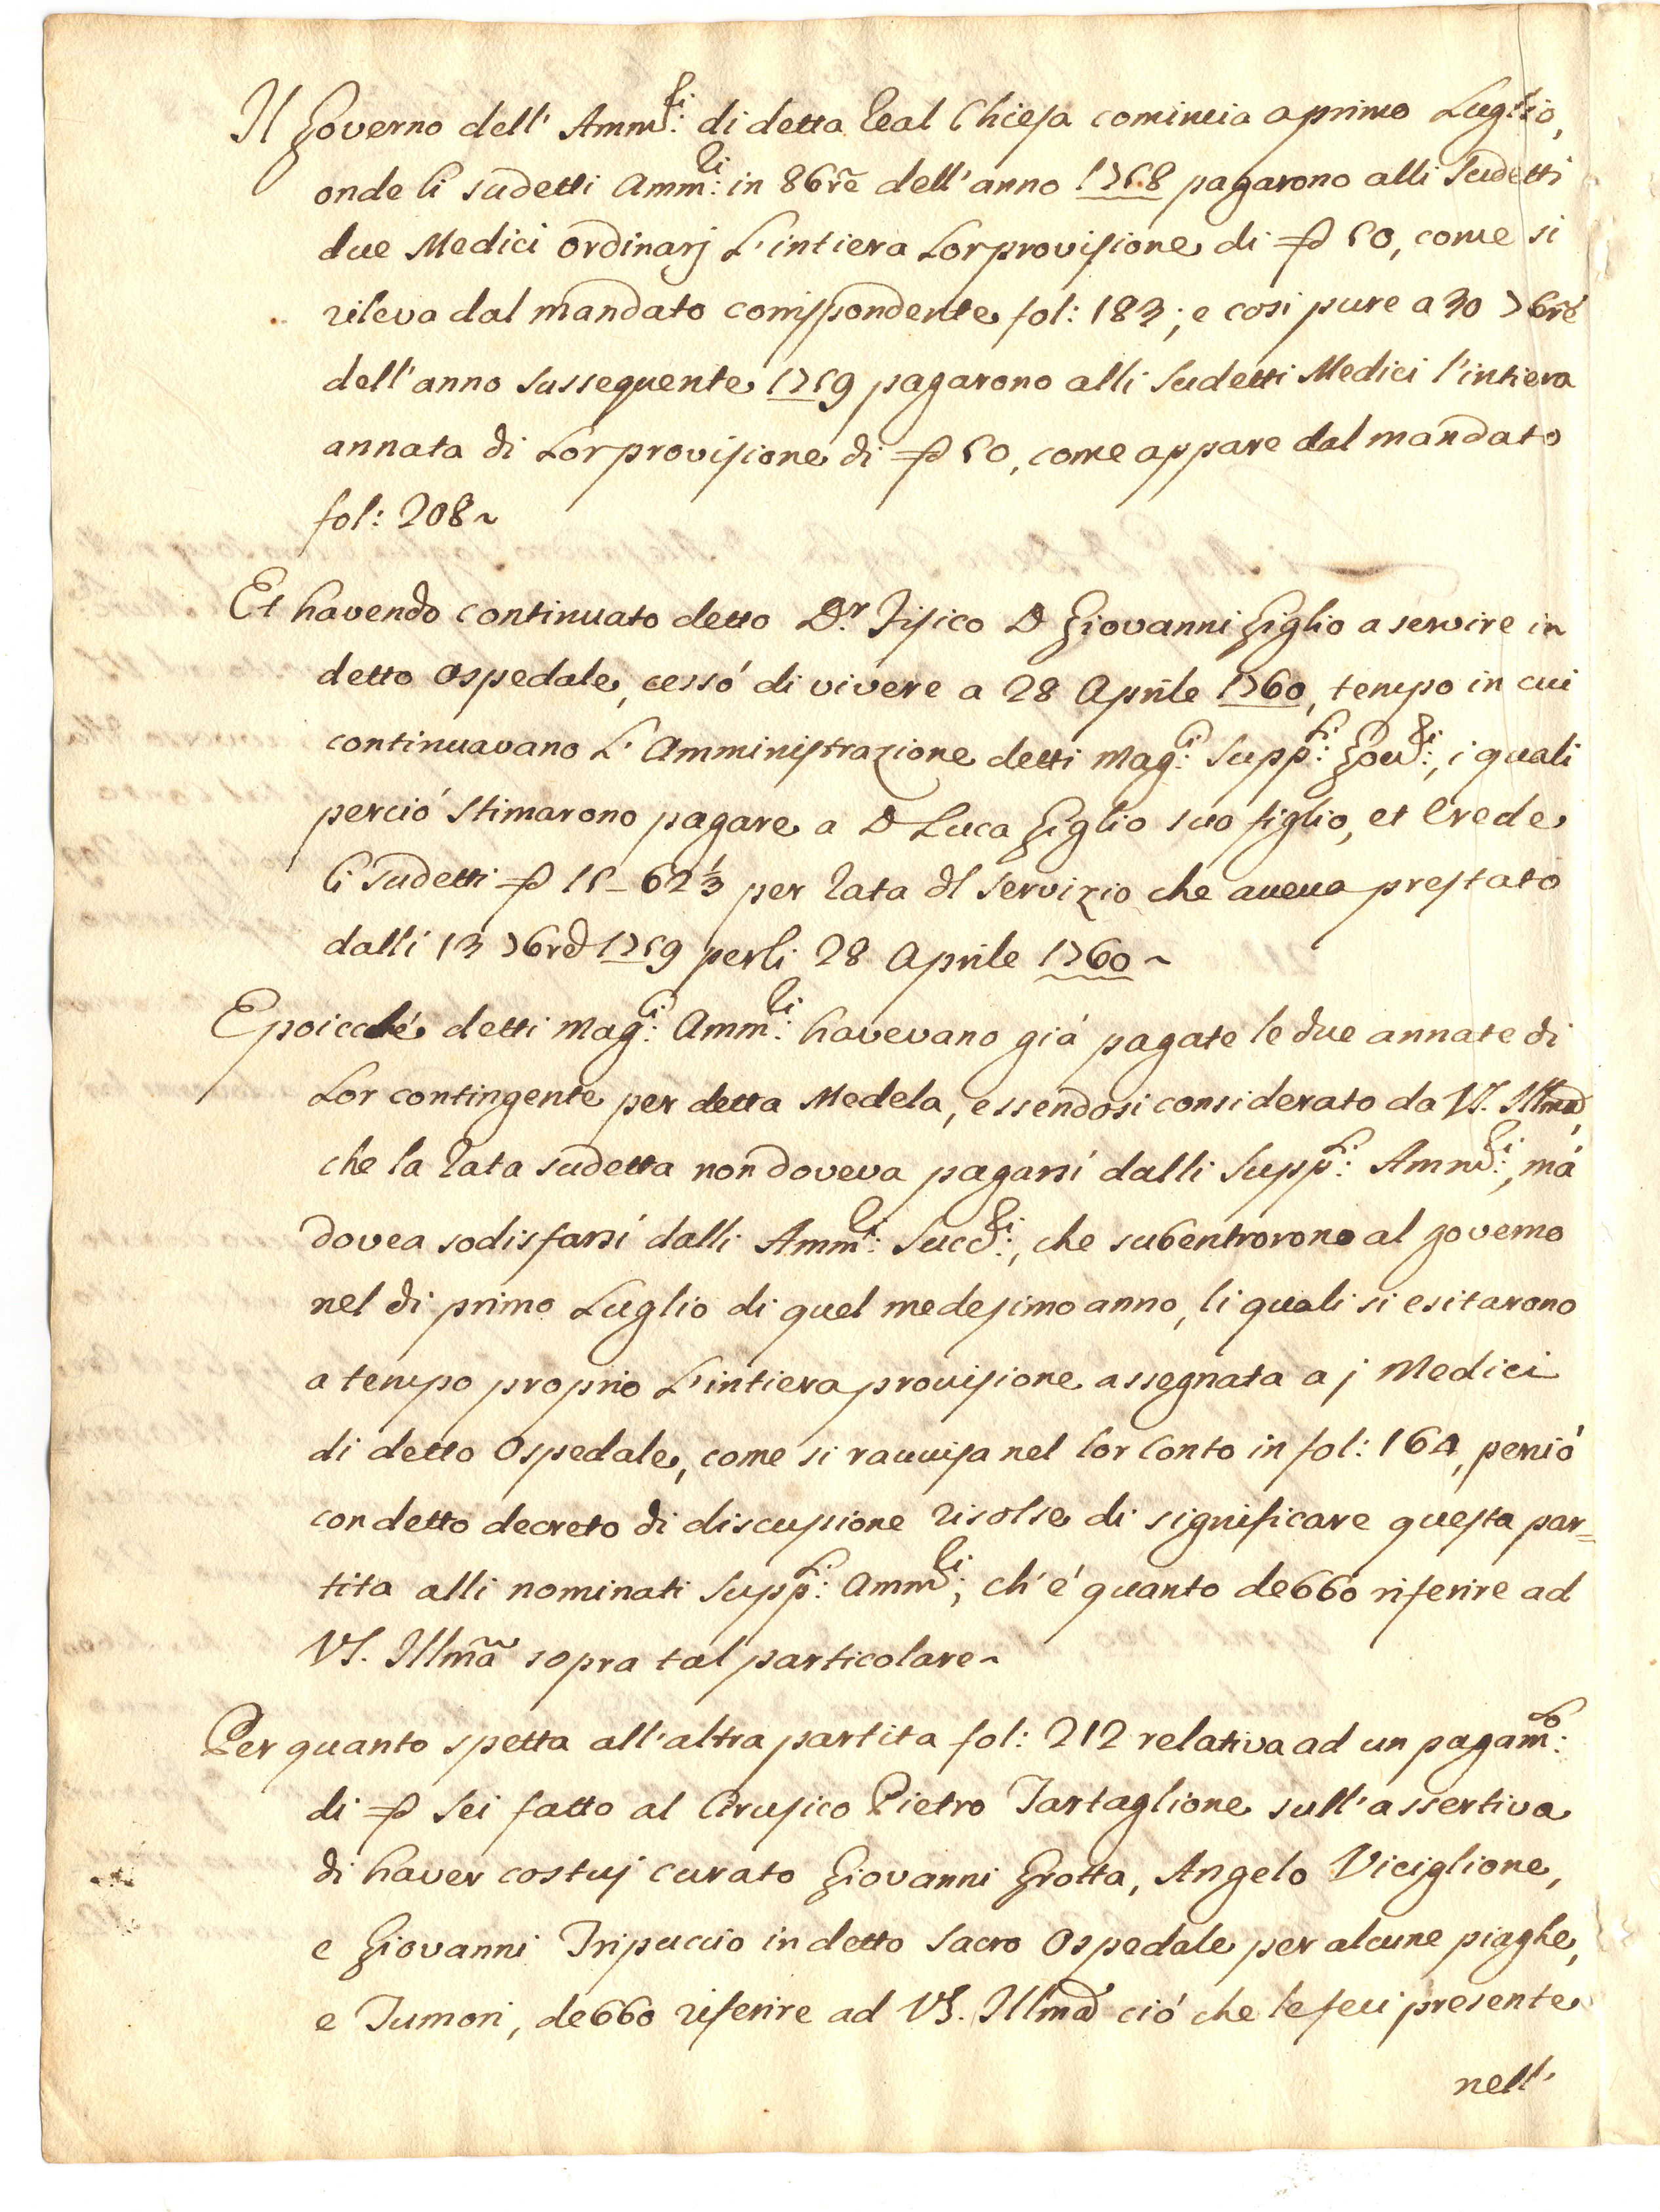 Il Governo dell' Ammri: di detta Real Chiesa comincia a primo Luglio,
onde li sudetti Ammri: in 8bre dell'anno 1758 pagarono alli sudetti
due Medici ordinarj l'intiera lor provisione di 50, come si
rileva dal mandato corrispondente fol: 183; e cosi pure a 30 7bre
dell'anno sussequente 1759 pagarono alli sudetti Medici l'intiera
annata di lor provisione di 50, come appare dal mandato
fol: 208~
Et havendo continuato detto Dr. Fisico D Giovanni Giglio a servire in
detto Ospedale, cessó di vivere a 28 Aprile 1760, tempo in cui
continuavano l'Amministrazione detti Magci: Suppti: Govri:, i quali
perció stimarono pagare a D Luca Giglio suo figlio, et Erede
li sudetti 15-62 1/3 per rata dl servizio che aveva prestato
dalli 13 7bre 1759 perli 28 Aprile 1760~
E poicché detti Magci: Ammri: havevano giá pagate le due annate di
lor contingente per detta Medela, essendosi considerato da VS. Illma,
che la rata sudetta non doveva pagarsi dalli Suppti: Ammri:, má
dovea sodisfarsi dalli Ammri: Succri:, che subentrorono al governo
nel di primo Luglio di quel medesimo anno, li quali si esitarono
a tempo proprio l'intiera provisione assegnata a j Medici
di detto Ospedale, come si ravvisa nel lor Conto in fol: 164, perció
con detto decreto di discussione risolse di significare questa par=
tita alli nominati Suppti: Ammri:, ch'é quanto debbo riferire ad
VS. Illma sopra tal particolare~
Per quanto spetta all'altra partita fol: 212 relativa ad un pagamto:
di sei fatto al Cirusico Pietro Tartaglione sull'assertiva
di haver costuj curato Giovanni Grotta, Angelo Viciglione,
e Giovanni Tripuccio in detto Sacro Ospedale per alcune piaghe,
e Tumori, debbo riferire ad VS. Illma ció che le feci presente
nell'